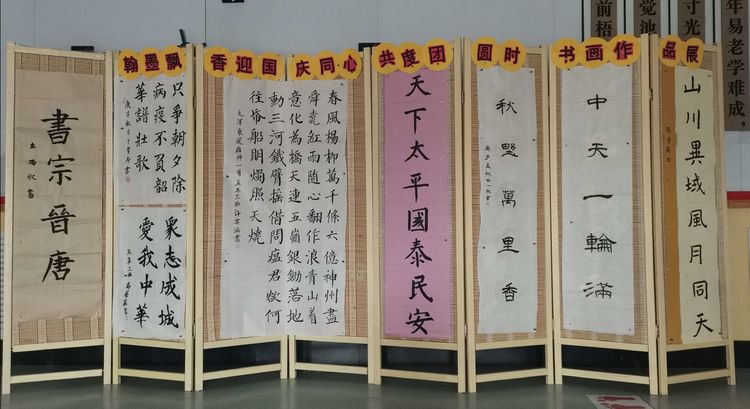 翰墨飘香迎国庆同心共度团圆时书画作品展
書宗晉唐
只爭朝夕除
病疫不負韶
華譜壯歌
眾志成城
愛我中華
春風楊柳萬千條六億神州盡
舜堯紅雨随心翻作浪青山着
意化為橋天連五嶺銀鋤落地
動三河鐵臂摇借問瘟君欲何
往紙船明燭照天燒
天下太平國泰民安
秋野萬里香
中天一輪滿
山川異域風月同天
年易老学难成,
寸光
觉池
前梧